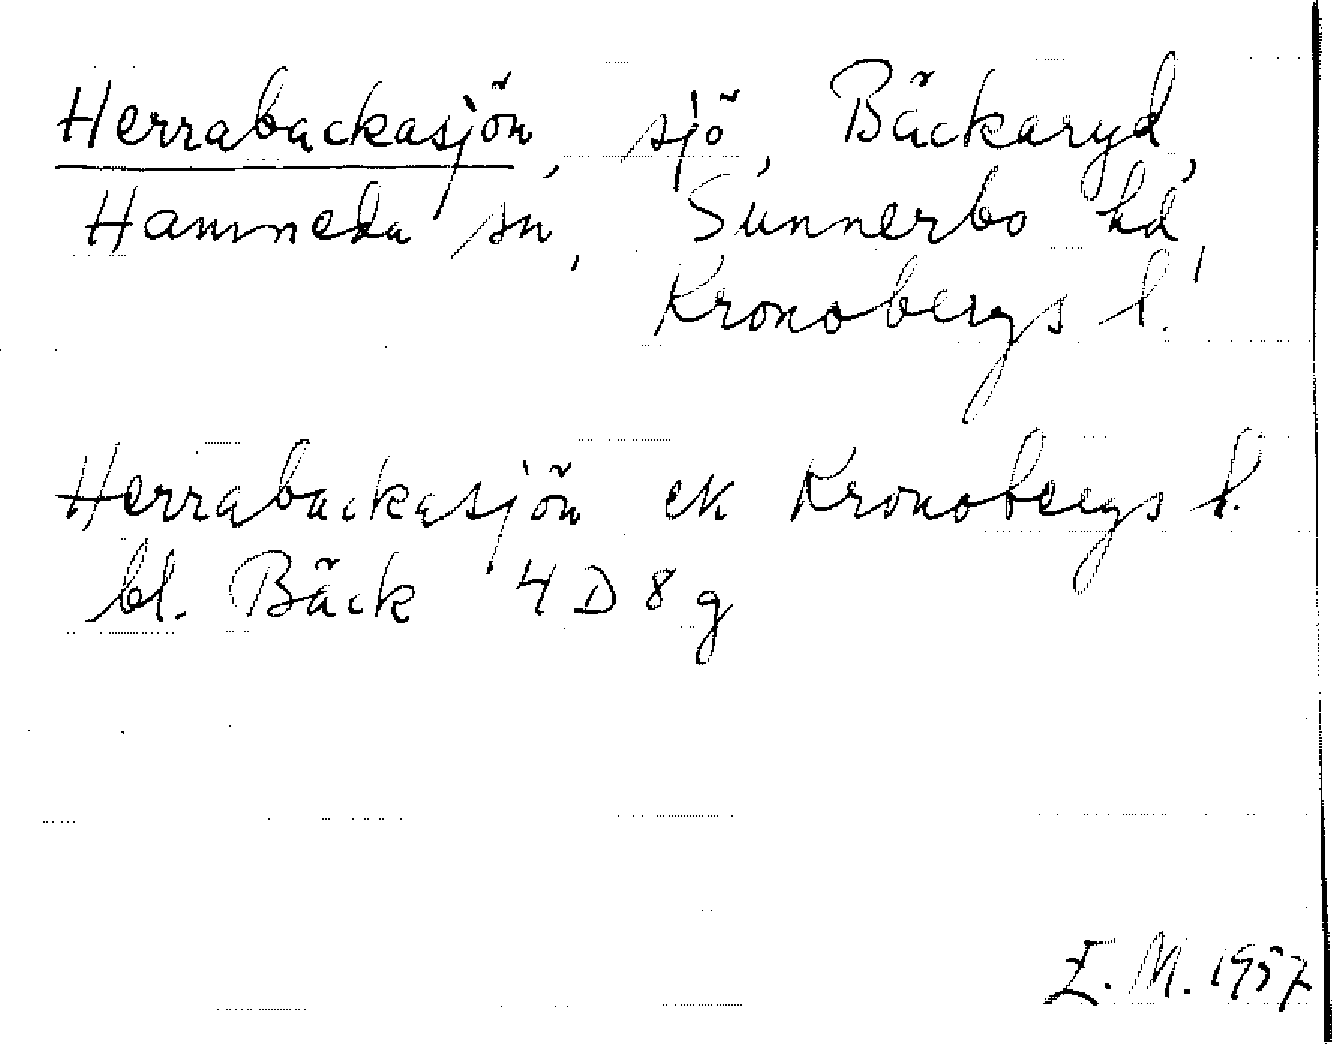 Herrabackasjön, sjö, Bäckaryd,
Hamneda sn, Sunnerbo hd,
Kronobergs l.
Herrabackasjön ek Kronobergs l.
bl. Bäck 4D8g
E. M. 1957